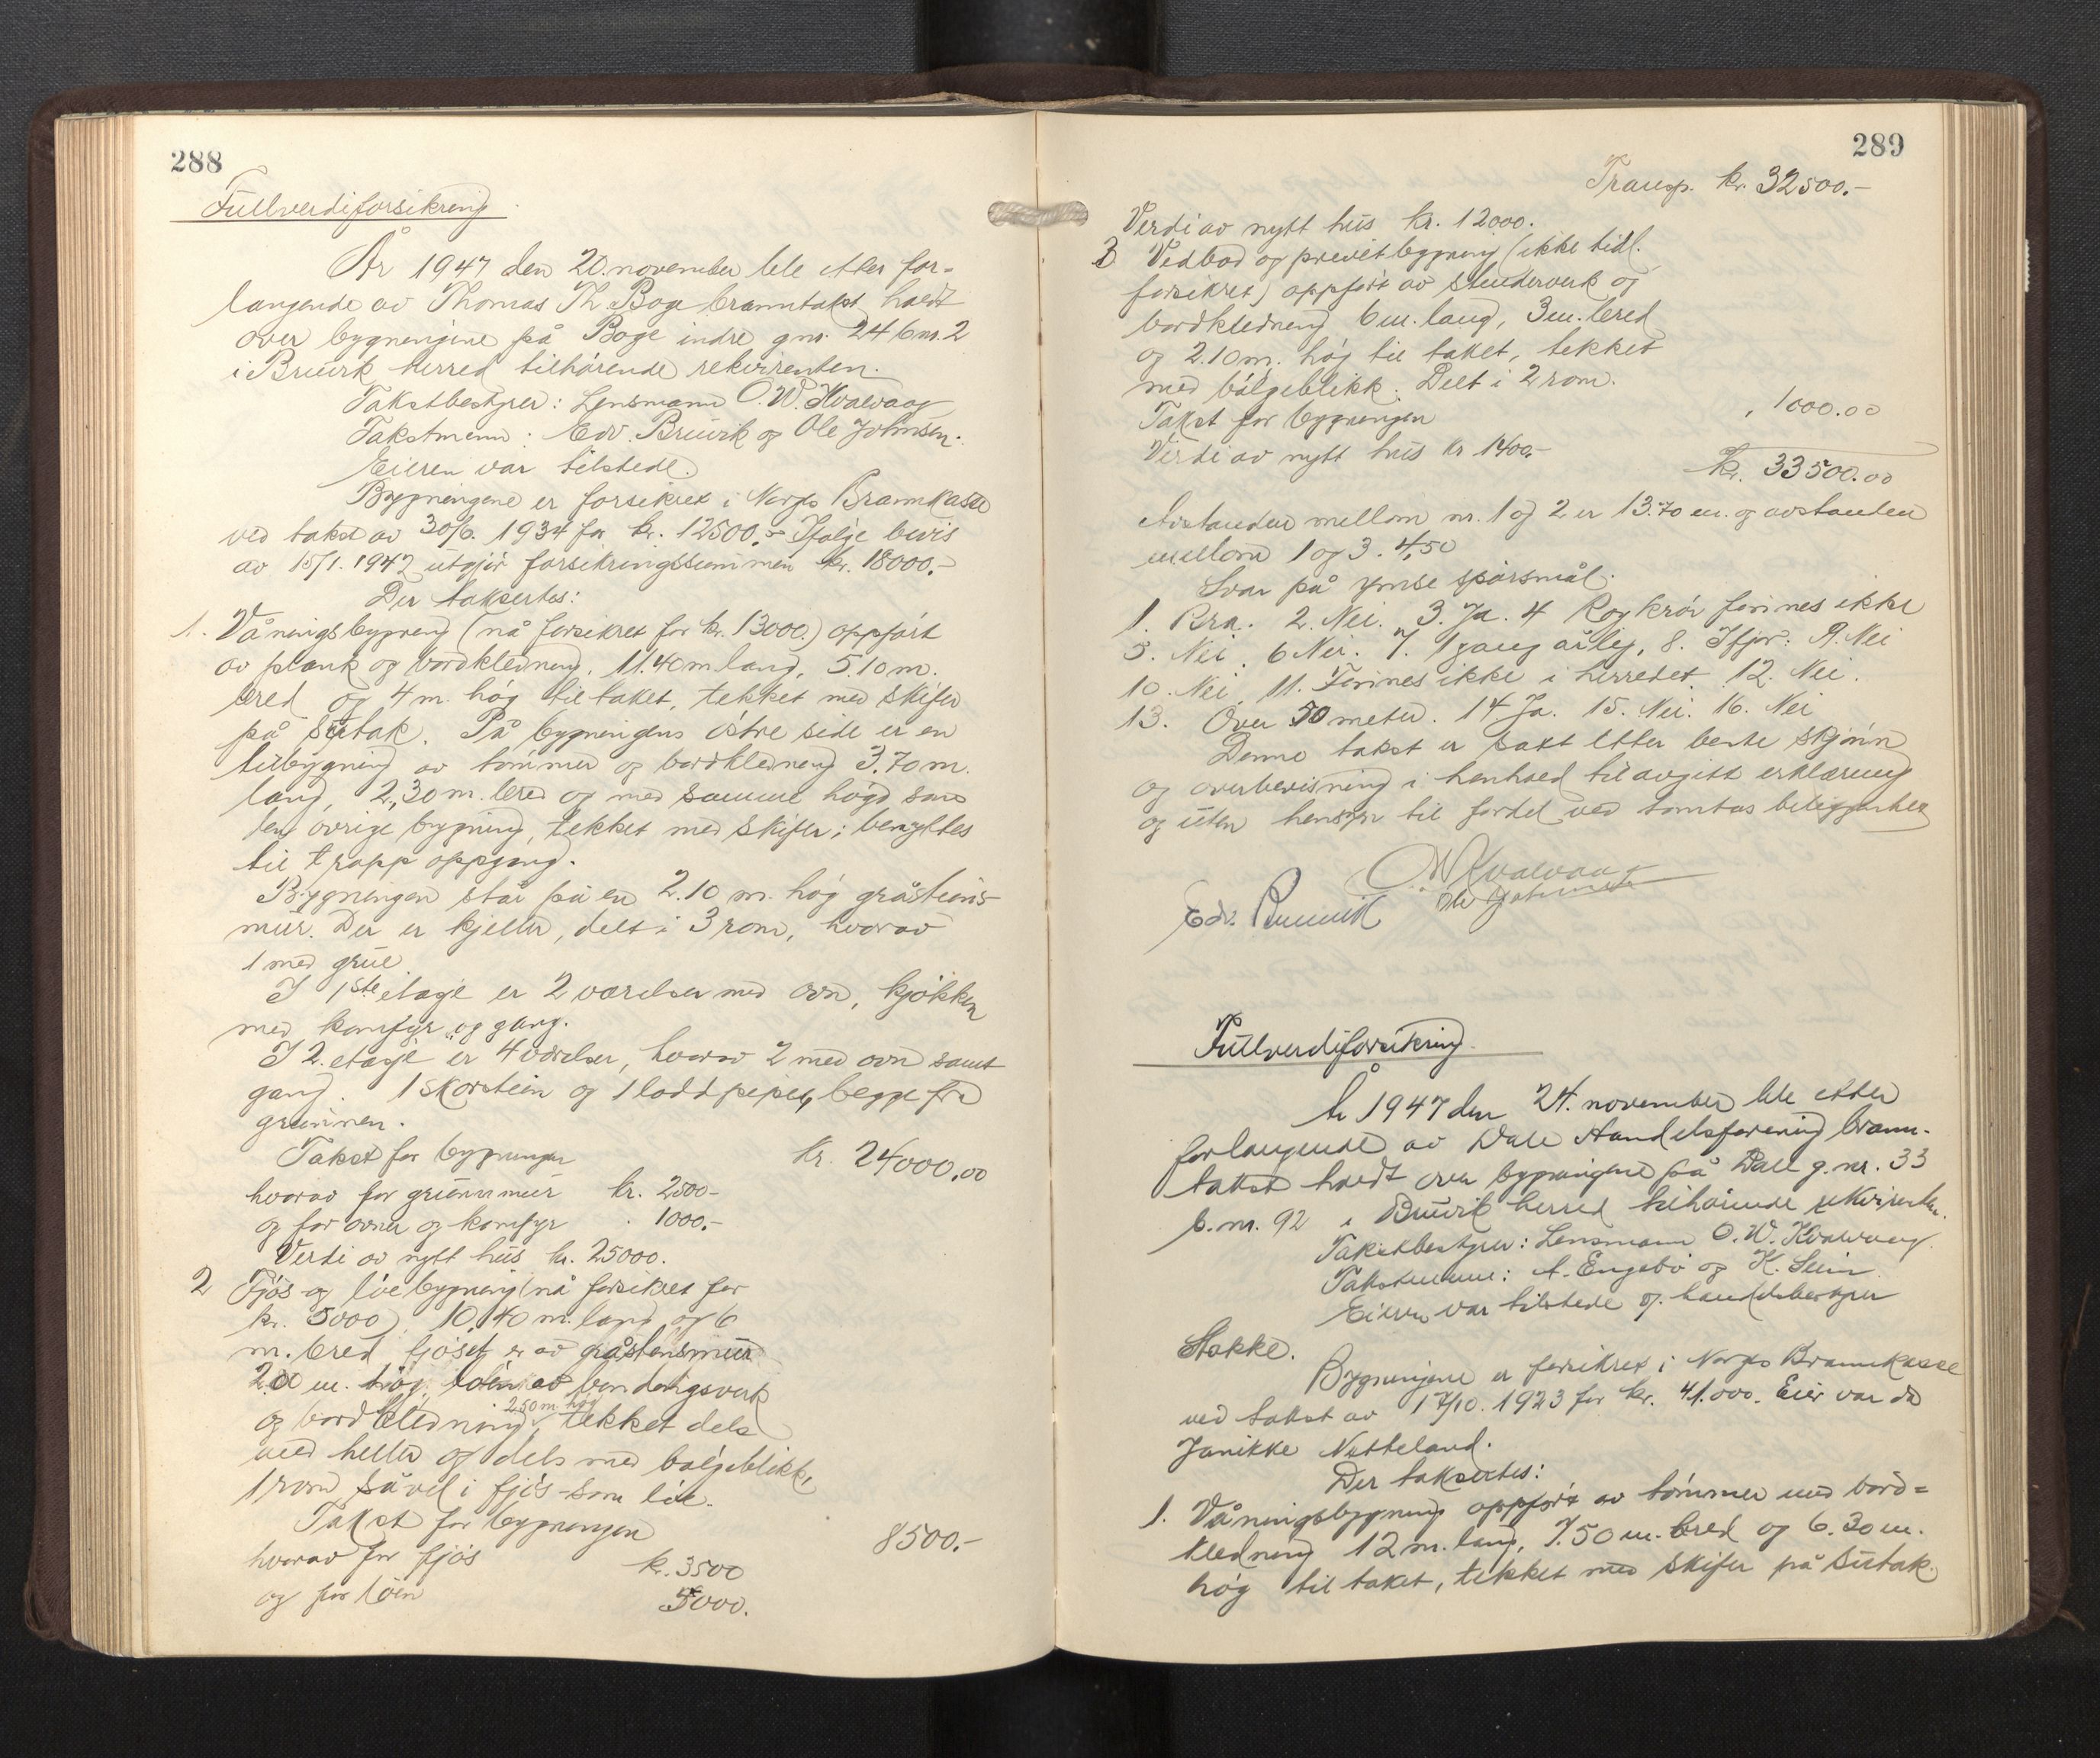 288
Fullverdiforsikring
År 1947 den 20. november ble etter for-
langende av Thomas Th. Boge branntakst holdt
over bygningene på Boge indre gnr. 24 bnr. 2
i Bruvik herred tilhørende rekvirenten.
Takstbestyrer: Lensmann O. W. Kvalvaag
Takstmenn: Edv. Bruvik og Ole Johnsen.
Eieren var tilstede.
Bygningene er forsikret i Norges Brannkasse
ved takst av 30/6. 1934 for kr. 12500.- Ifølge bevis
av 15/1. 1942 utgjør forsikringssummen kr. 18000.-
Der taksertes:
1. Våningsbygning (nå forsikret for kr. 13000.) oppført
av plank og bordkledning. 11.40 m lang, 5.10 m.
bred og 4 m. høg til taket, tekket med skifer
på sutak. På bygningens østre side er en
tilbygning av tømmer og bordkledning 3.70 m.
lang, 2,30 m. bred og med samme høgd som
den øvrige bygning, tekket med skifer; benyttes
til trapp oppgang.
Bygningen står på en 2.10 m. høg gråsteins-
mur. Der er kjeller, delt i 3 rom, hvorav
1 med grue.
I 1ste etage er 2 værelser med ovn, kjøkken
med komfyr og gang.
I 2. etasje er 4 værelser, hvorav 2 med ovn samt
gang. 1 skorstein og 1 loddpipe, begge fra
grunnen.
Takst for bygningen kr. 24000,00
hvorav for grunnmur kr. 2500-
og for ovner og komfyr . 1000.-
Verdi av nytt hus kr. 25000.
2 Fjøs og løebygning (nå forsikret for
kr. 5000). 10,40 m. lang og 6
m. bred fjøset er av gråstensmur
2.00 m. høg. løen av bindingsverk
og bordkledning 250 m høg, tekket dels
med heller og dels med bølgeblikk,
1 rom såvel i fjøs som løe.
Takst for bygningen 8500.-
hvorav for fjøs kr. 3500
og for løen 5000.
289
Transp. kr. 32500.-
Verdi av nytt hus kr. 12000.
3 Vedbod og privetbygning (ikke tidl.
forsikret) oppført av stenderverk og
bordkledning 6 m. lang, 3 m. bred
og 2.10 m. høg til taket, tekket
med bølgeblikk. Delt i 2 rom.
Takst for bygningen , 1000.00
Verdi av nytt hus kr 1400.-
kr. 33500.00
Avstanden mellom nr. 1 og 2 er 13.70 m. og avstanden
mellom 1 og 3. 4,50
Svar på ymse spørsmål:
1. Bra. 2. Nei. 3. Ja. 4 Røykrør finnes ikke
5. Nei. 6 Nei. 7. 1 gang årlig, 8. Ifjor: 9. Nei
10. Nei 11. Finnes ikke i herredet 12. Nei.
13. Over 50 meter. 14. Ja. 15. Nei. 16. Nei
Denne takst er satt etter beste skjønn
og overbevisning i henhold til avgitt erklæring
og uten hensyn til fordel ved tomtas beliggenhet
O W Kvalvaag
Edv. Bruvik Ole Johnsen
Fullverdiforsikring.
År 1947 den 24. november ble etter
forlangende av Dale Handelsforening brann-
takst holdt over bygningene på Dale g.nr. 33
b.nr. 92 i Bruvik herred tilhørende rekvirenten.
Takstbestyrer: Lensmann O. W. Kvalvaag.
Takstmenn: A. Engebø og K. Seim
Eieren var tilstede v. handelsbestyrer
Stokke.
Bygningene er forsikret i Norges Brannkasse
ved takst av 17/10. 1923 for kr. 41.000. Eier var da
Janikke Netteland.
Der taksertes:
1. Våningsbygning oppført av tømmer med bord-
kledning 12 m. lang, 7.50 m. bred og 6.30 m.
høg til taket, tekket med skifer på sutak.